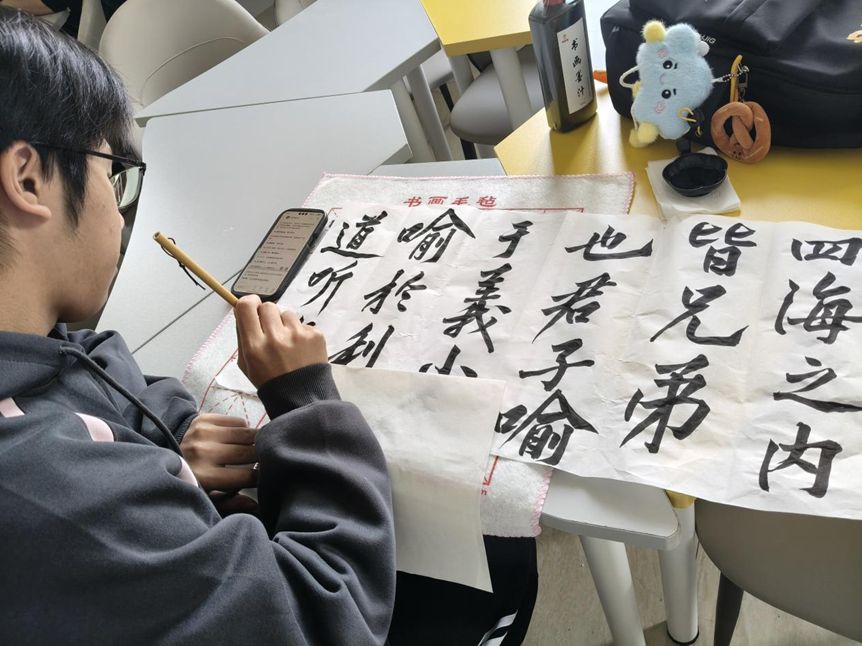 四海之内
皆兄弟
也君子喻
于義小
喻於利
道听
书画毛毡
书画墨汁